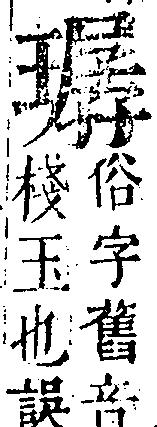 俗字舊音
棧玉也誤